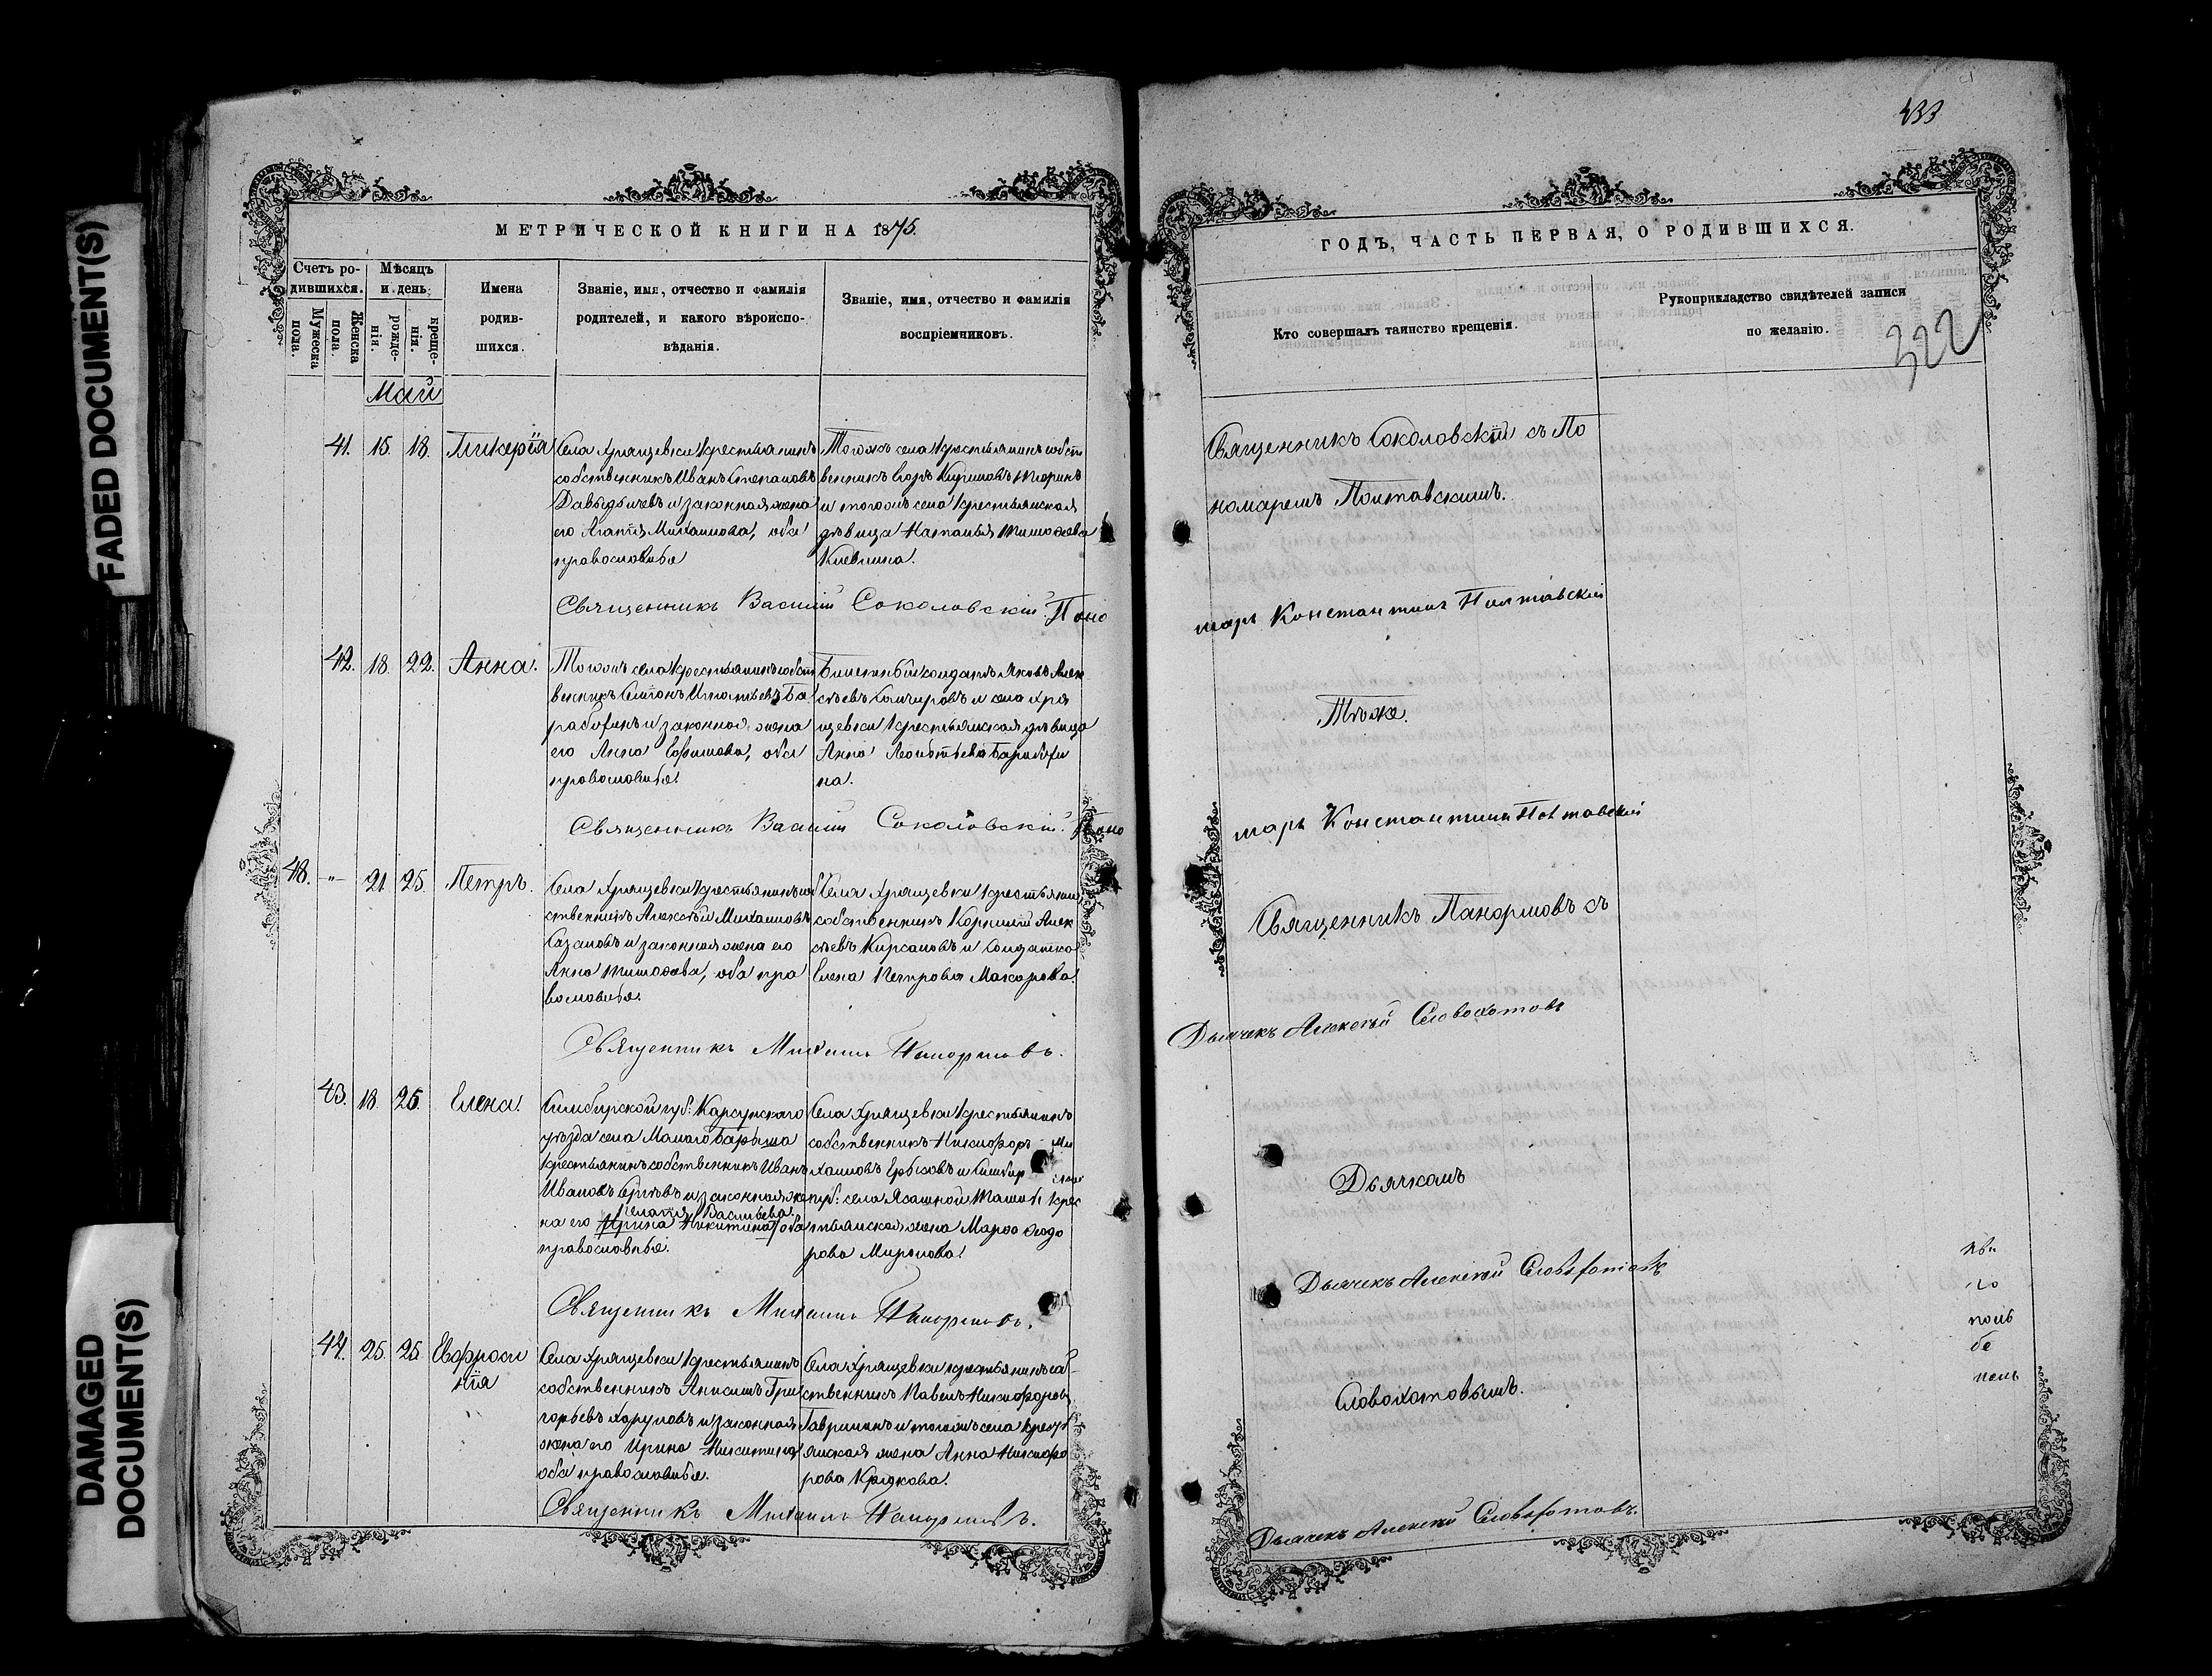 FADED DOCUMENT(S)
DAMAGED
DOCUMENT(S)
МЕТРИЧЕСКОЙ КНИГИ НА 1875.
Счетъ ро-
дившихся.
Мужеска
пола.
Женска
пола.
Мѣсяцъ
и день
рожде-
нія.
креще-
нія.
Имена
родив-
шихся.
Званіе, имя, отчество и фамилія
родителей, и какого вѣроиспо-
вѣданія.
Званіе, имя, отчество и фамилія
воспріемниковъ.
Май
41. 15. 18. Гликерія
Села Хрящевки крестьянинъ
собственникъ Иванъ Степановъ
Давыдычевъ и законная жена
его Агапія Михаилова, оба
православные
Тогожъ села крестьянинъ собст
венникъ Егоръ Кириловъ Тюринъ
и тогожъ села крестьянская
дѣвица Наталья Тимофеева
Киевлина.
Священникъ Василій Соколовскій. Поно
42. 18. 22. Анна.
Тогожъ села крестьянинъ собст
венникъ Симеонъ Игнатьевъ Ба
работинъ и законная жена
его Анна Ефимова, оба
православные.
Билетный солдатъ Яковъ Алек
сѣевъ и села Хря
щевки крестьянская дѣвица
Анна Леонтьева Барабоши
на.
Священникъ Василій Соколовскій. Поно
48. -"- 21 25. Петръ.
Села Хрящевки крестьянинъ соб
ственникъ Алексѣй Михаиловъ
Сазановъ и законная жена его
Анна Тимофеева, оба пра
вославные.
Села Хрящевки крестьянин
собственникъ Корнилій Алек
сѣевъ Кирсановъ и солдатка
Елена Петрова Макарова.
Священникъ Михаилъ Панормовъ.
43. 18. 25. Елена.
Симбирской губ: Карсунскаго
уѣзда села Малаго Барыша
крестьянинъ собственникъ Иванъ
Ивановъ и законная же
Пелагія Васильева
на его Ирина Никитина, оба
православные.
Села Хрящевки крестьянинъ
собственникъ Никифоръ Ми
хаиловъ и Симбир
губ: села Ясашной Ташлы крес
тьянская жена Марфа Ѳедо
рова Миронова.
Священникъ Михаилъ Панормовъ.
44. 25. 25. Евфроси
нія
Села Хрящевки крестьянинъ
собственникъ Анисимъ Гри
горьевъ и законная
жена его Ирина Никитина
оба православные.
Села Хрящевки крестьянинъ соб-
ственникъ Павелъ Никифоровъ
Гаврилинъ и тогожъ села крест
янская жена Анна Никифо
рова Крюкова.
Священникъ Михаилъ Панормовъ.
433
ГОДЪ, ЧАСТЬ ПЕРВАЯ, О РОДИВШИХСЯ.
Кто совершалъ таинство крещенія.
Рукоприкладство свидѣтелей записи
по желанію.
322
Священникъ Соколовскій съ По
номаремъ Полтавскимъ.
марь Константинъ Полтавскій
Тѣже.
марь Константинъ Полтавскій
Священникъ Панормовъ съ
Дьячекъ Алексѣй Словохотовъ
Дьячкомъ
Дьячекъ Алексѣй Словохотовъ
Словохотовымъ.
Дьячекъ Алексѣй Словохотовъ.